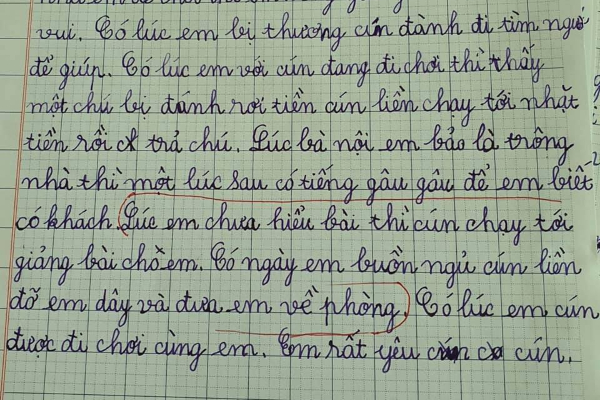 vui. Có lúc em bị thương cún đành đi tìm người
để giúp. Có lúc em với cún đang đi chơi thì thấy
một chú bị đánh rơi tiền cún liền chạy tới nhặt
tiền rồi trả chú. Lúc bà nội em bảo là trông
nhà thì một lúc sau có tiếng gâu gâu để em biết
có khách. Lúc em chưa hiểu bài thì cún chạy tới
giảng bài cho em. Có ngày em buồn ngủ cún liền
đỡ em dây và đưa em về phòng. Có lúc em cún
được đi chơi cùng em. Em rất yêu cún.